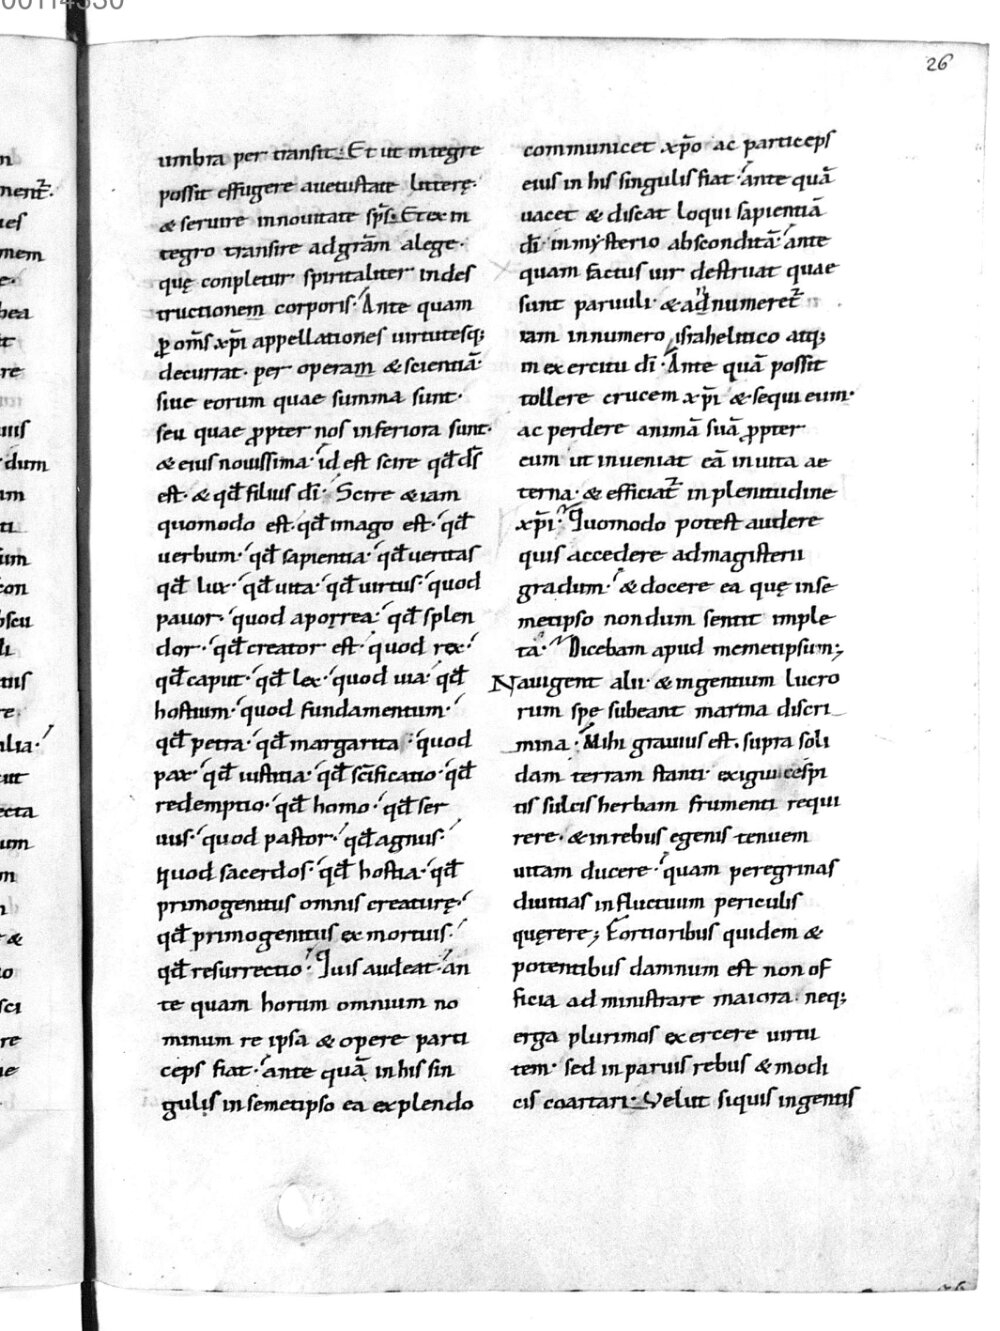 00114330
26
umbra per transit. Et ut integre
possit effugere auetustate litterę·
& seruire innouitate sp̄s. Et ex in
tegro transire adgrām alege·
quę conpletur spiritaliter indes
tructionem corporis· Ante quam
ꝑ om̄s xp̄i appellationes uirtutesq;
decurrat· per operam & scientiā·
siue eorum quae summa sunt·
seu quae ꝓpter nos inferiora sunt·
& eius nouissima· id est scire qđ d̄s
est· & qđ filius dī· Scire & iam
quomodo est· qđ imago est· qđ
uerbum· qđ sapientia· qđ ueritas
qđ lux· qđ uita· qđ uirtus· quod
pauor· quod aporrea· qđ splen
dor· qđ creator est· quod rex·
qđ caput· qđ lex· quod uia· qđ
hostium· quod fundamentum·
qđ petra· qđ margarita· quod
pax· qđ iustitia· qđ sc̄ificatio· qđ
redemptio· qđ homo· qđ ser
uus· quod pastor· qđ agnus·
quod sacerdos· qđ hostia· qđ
primogenitus omnis creaturę·
qđ primogenitus ex mortuis·
qđ resurrectio· Quis audeat· an
te quam horum omnium no
minum re ipsa & opere parti
ceps fiat· ante quā in his sin
gulis in semetipso ea explendo
communicet xp̄o ac particeps
eius in his singulis fiat· ante quā
uacet & discat loqui sapientiā
dī· in mysterio absconditā· ante
quam factus uir destruat quae
sunt paruuli· & adnumeret̄
iam innumero israhelitico atq;
in exercitu dī· Ante quā possit
tollere crucem xp̄i & sequi eum·
ac perdere animā suā ꝓpter
eum ut inueniat eā in uita ae
terna· & efficiat̄ in plenitudine
xp̄i· Quomodo potest audere
quis accedere admagisterii
gradum· & docere ea quę inse
metipso nondum sentit imple
ta· Dicebam apud memetipsum;
Nauigent alii· & ingentium lucro
rum spe subeant marina discri
mina· Mihi grauius est. supra soli
dam terram stanti· exigui cespi
tis sulcis herbam frumenti requi
rere· & in rebus egenis tenuem
uitam ducere· quam peregrinas
diuitias influctuum periculis
quęrere; Fortioribus quidem &
potentibus damnum est non of
ficia administrare maiora· neq;
erga plurimos exercere uirtu
tem· sed in paruis rebus & modi
cis coartari· Velut siquis ingentis